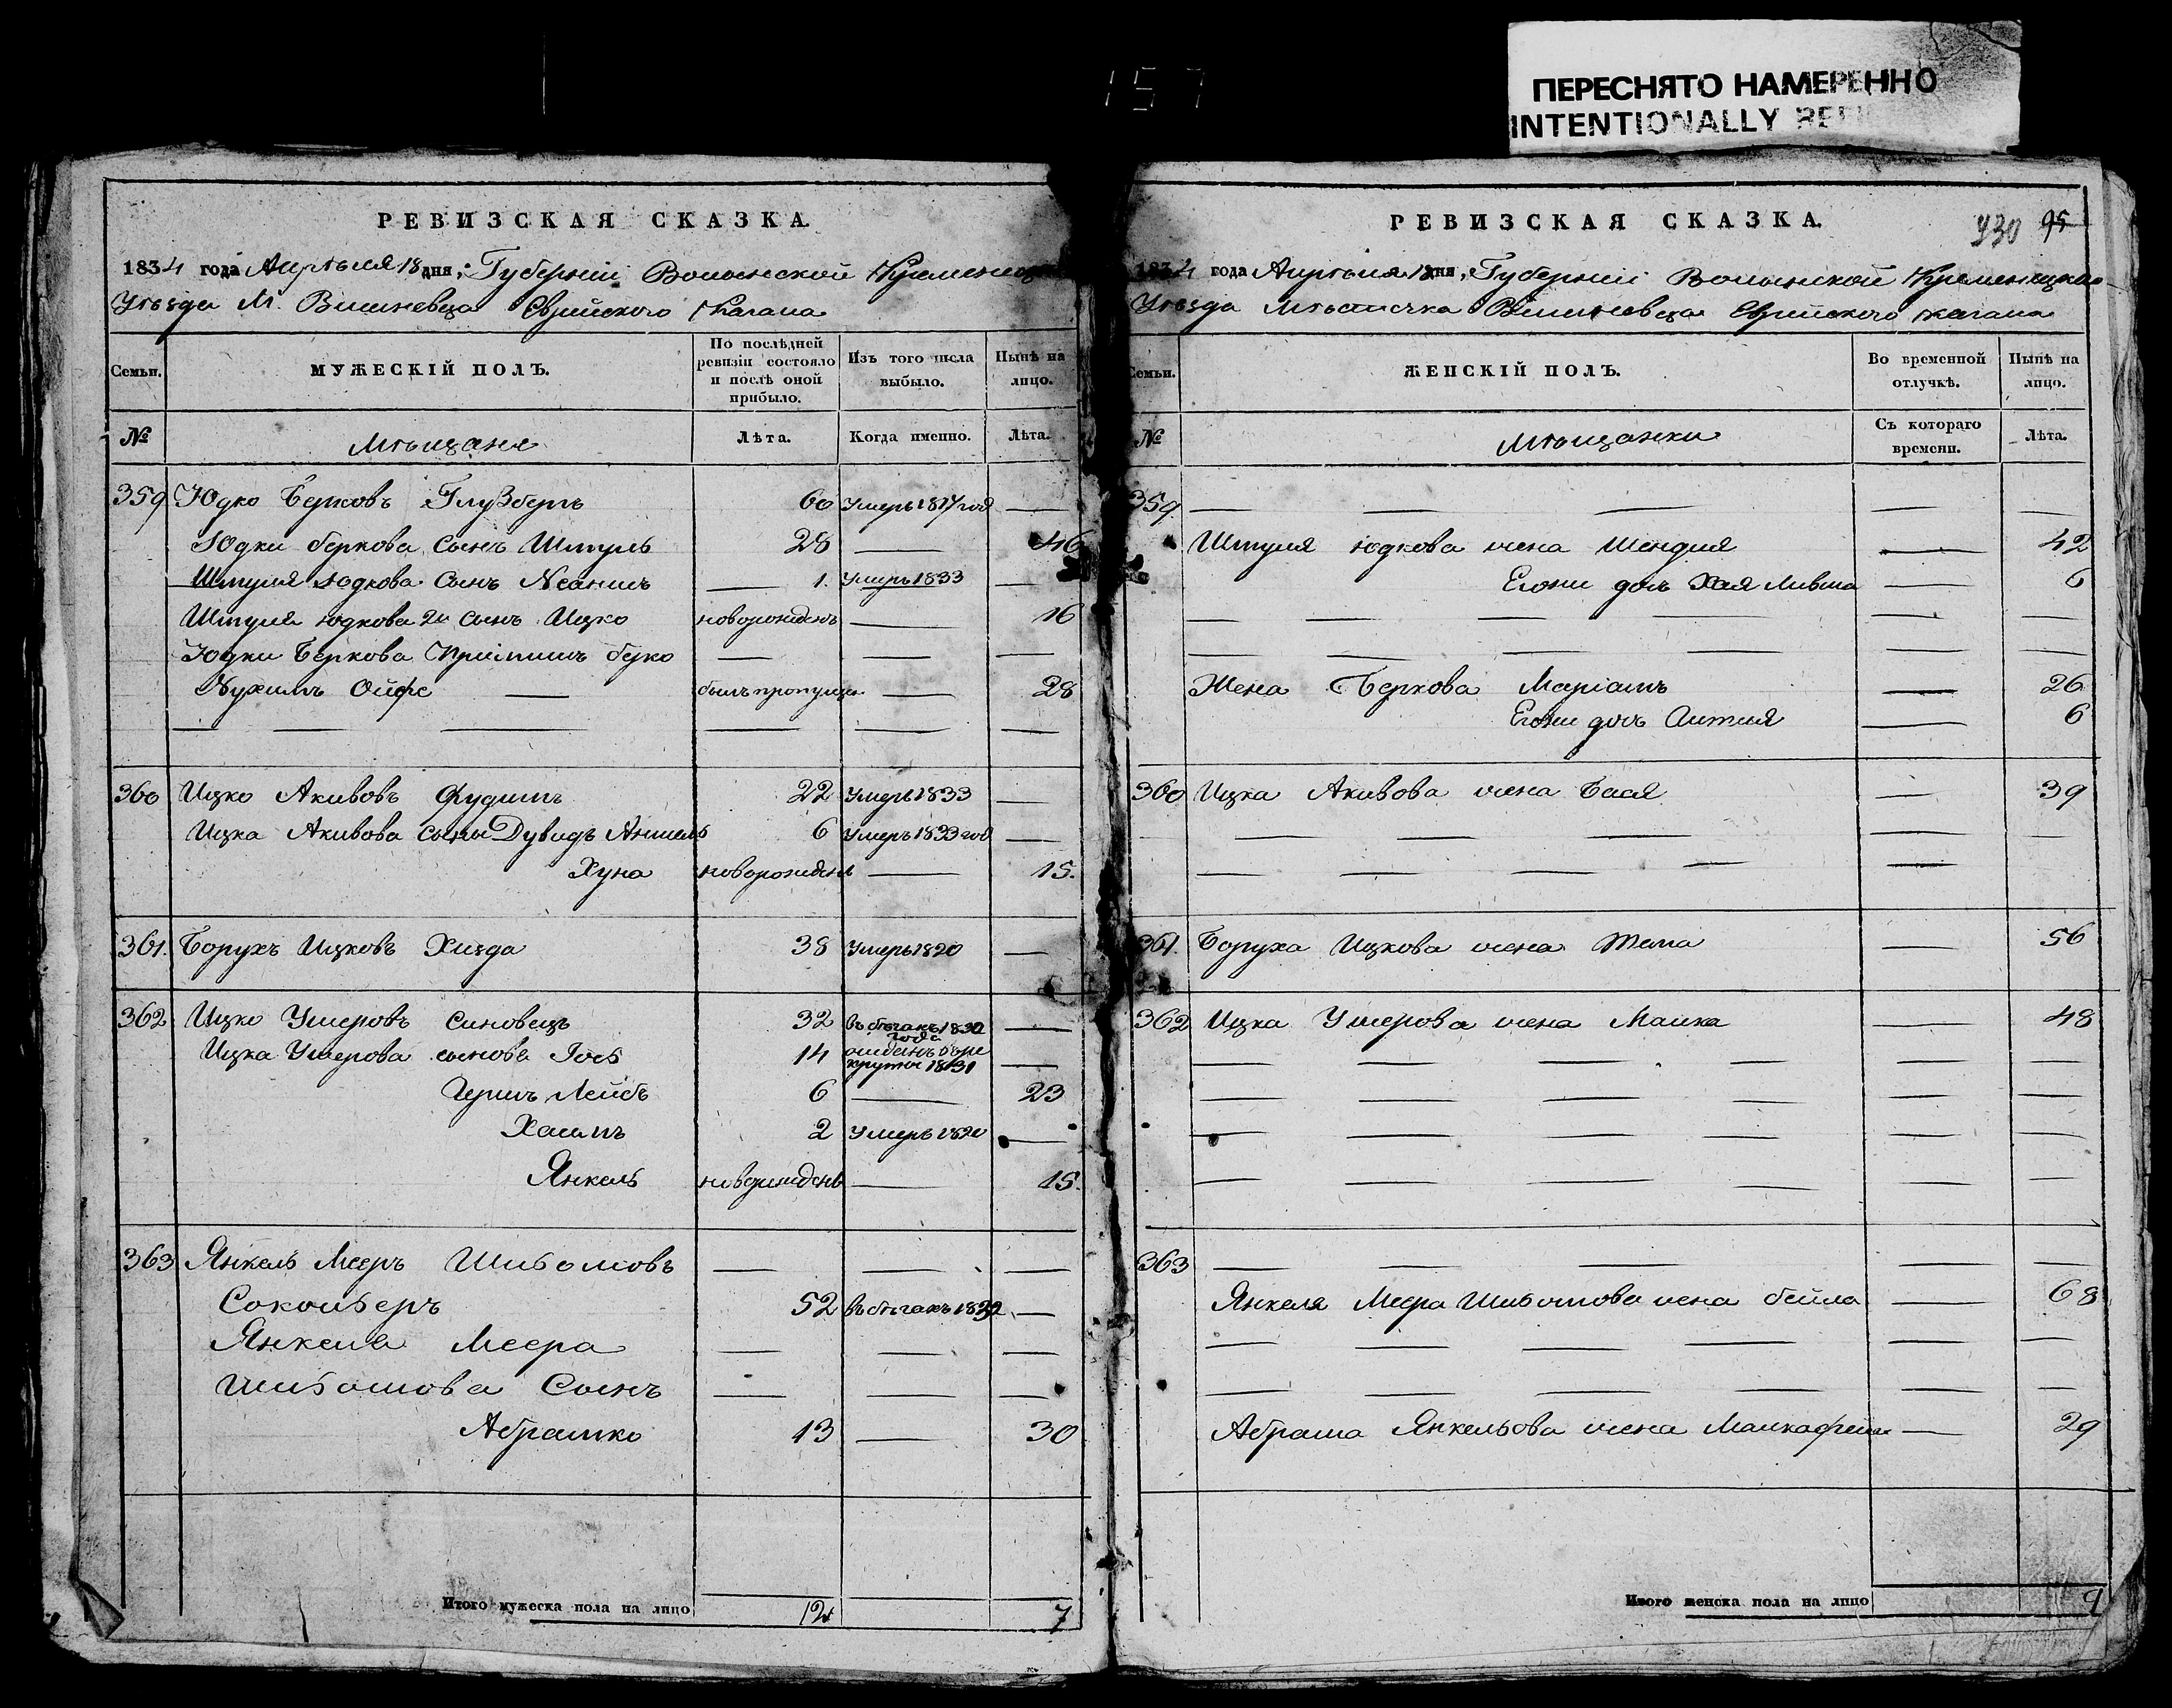 157
ПЕРЕСНЯТО НАМЕРЕННО
INTENTIONALLY
РЕВИЗСКАЯ СКАЗКА.
1834 года Апрѣля 18 дня, Губерніи Волынской Кременецкаго
Уѣзда М. Вишневца Еврейского Кагала
Семьи. МУЖЕСКІЙ ПОЛЪ. По послѣдней ревизіи состояло и послѣ оной прибыло. Изъ того числа выбыло. Нынѣ на лицо.
№ Мѣщаня Лѣта. Когда именно. Лѣта.
359 Юдко Берковъ Глузберъ 60 Умеръ 1817 год —
Юдки беркова сынъ Шмуль 28 — 46
Шмуля Юдкова Сынъ — 1. Умеръ 1833 —
Шмуля Юдкова 2й сынъ Ицко новорожденъ — 16
Юдки Беркова Пріймышъ берко — — —
Нухимъ Ойфе — былъ пропущен — 28
— — — — — —
360 Ицко Акивовъ Фудимъ 22 Умеръ 1833 —
Ицка Акивова сыны Дувидъ Аншель 6 Умеръ 1833 год —
Хуна новорожденъ — 15.
361. Борухъ Ицковъ Хизда 38 Умеръ 1820 —
362 Ицко Умеровъ Синовецъ 32 въ бѣгахъ 1830 года —
Ицка Умерова сынова Іось 14 отданъ в рекруты 1831 —
Гершъ Лейбъ 6 — 23
Хаимъ 2 Умеръ 1820 —
Янкель новорожденъ — 15.
363 Янкель Мееръ — — —
52 въ бѣгахъ 1832 —
Янкеля Меера — — —
Сынъ — — —
Абрамко 13 — 30
Итого мужеска пола на лицо 12 7
РЕВИЗСКАЯ СКАЗКА. 430 95
1834 года Апрѣля 18 дня, Губерніи Волынской Кременецкаго
Уѣзда Мѣстечка Вишневца Еврейского кагала
Семьи. ЖЕНСКІЙ ПОЛЪ. Во временной отлучкѣ. Нынѣ на лицо.
№ Мѣщанки Съ котораго времени. Лѣта.
359. — — — — —
Шмуля юдкова жена Шендля — 42
Егожи доч Хая Ливша — 6
— — — — — —
— — — — — —
Жена Беркова Маріамъ — 26
Егожи доч — 6
360 Ицка Акивова жена Бася — 39
— — — — —
— — — — —
361. Боруха Ицкова жена — 56
362 Ицка Умерова жена Малка — 48
— — — — — —
— — — — — —
— — — — — —
— — — — — —
363 — — — — —
Янкеля Меера жена бейла — 68
— — — — — —
— — — — — —
Абрама Янкельова жена — 29
Итого женска пола на лицо 9